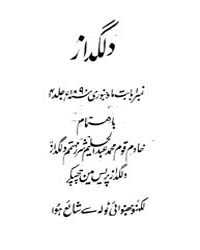 دلگداز
نمبر۱ بابت ماہ جنوری سنہ ۱۸۹۰ء جلد ۴
باہتمام
خادم قوم محمد عبدالحلیم شرر مہتمم دلگداز
دلگداز پریس مین چھپکر
لکھنؤ جھنوائی ٹولہ سے شائع ہوا